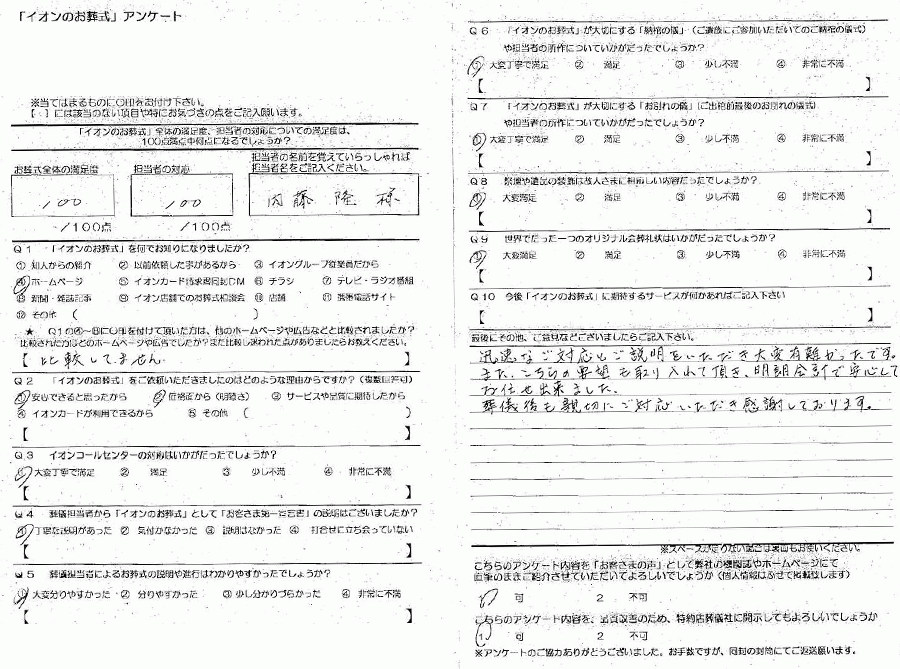 「イオンのお葬式」アンケート
※当てはまるものに〇印をお付け下さい。
【 】には該当のない項目や特にお気づきの点をご記入願います。
「イオンのお葬式」全体の満足度、担当者の対応についての満足度は、
100点満点中何点になるでしょうか?
お葬式全体の満足度 担当者の対応 担当者の名前を覚えていらっしゃれば
担当者名をご記入ください。
100 100 内藤 隆 様
/100点 /100点
Q1 「イオンのお葬式」を何でお知りになりましたか?
① 知人からの紹介 ② 以前依頼した事があるから ③ イオングループ従業員だから
④ ホームページ ⑤ イオンカード請求書同封DM ⑥ チラシ ⑦ テレビ・ラジオ番組
⑧ 新聞・雑誌記事 ⑨ イオン店舗でのお葬式相談会 ⑩ 店舗 ⑪ 携帯電話サイト
⑫ その他 (
★ Q1の④~⑧に〇印を付けて頂いた方は、他のホームページや広告などと比較されましたか?
比較された方はどのホームページや広告でしたか?また比較し迷われた点がありましたらお教えください。
【 比較してません 】
Q2 「イオンのお葬式」をご依頼いただきましたのはどのような理由からですか?(複数回答可)
① 安心できると思ったから ② 価格面から(明瞭さ) ③ サービスや品質に期待したから
④ イオンカードが利用できるから ⑤ その他 ( )
【 】
Q3 イオンコールセンターの対応はいかがだったでしょうか?
① 大変丁寧で満足 ② 満足 ③ 少し不満 ④ 非常に不満
【 】
Q4 葬儀担当者から「イオンのお葬式」として「お客さま第一宣言書」の説明はございましたか?
① 丁寧な説明があった ② 気付かなかった ③ 説明はなかった ④ 打合せに立ち会っていない
【 】
Q5 葬儀担当者によるお葬式の説明や進行はわかりやすかったでしょうか?
① 大変分りやすかった ② 分りやすかった ③ 少し分かりづらかった ④ 非常に不満
【 】
Q6 「イオンのお葬式」が大切にする「納棺の儀」(ご遺族にご参加いただいてのご納棺の儀式)
や担当者の所作についていかがだったでしょうか?
① 大変丁寧で満足 ② 満足 ③ 少し不満 ④ 非常に不満
【 】
Q7 「イオンのお葬式」が大切にする「お別れの儀」(ご出棺前最後のお別れの儀式)
や担当者の所作についていかがだったでしょうか?
① 大変丁寧で満足 ② 満足 ③ 少し不満 ④ 非常に不満
【 】
Q8 祭壇や遺品の装飾は故人さまに相応しい内容だったでしょうか?
① 大変満足 ② 満足 ③ 少し不満 ④ 非常に不満
【 】
Q9 世界でたった一つのオリジナル会葬礼状はいかがだったでしょうか?
① 大変満足 ② 満足 ③ 少し不満 ④ 非常に不満
【 】
Q10 今後「イオンのお葬式」に期待するサービスが何かあればご記入下さい
【 】
最後にその他、ご意見などございましたらご記入下さい。
迅速なご対応とご説明をいただき大変有難かったです。
また、こちらの要望も取り入れて頂き、明朗会計で安心して
お任せ出来ました。
葬儀後も親切にご対応いただき感謝しております。
※スペースが足りない場合は裏面もお使いください。
こちらのアンケート内容を「お客さまの声」として弊社の機関誌やホームページにて
直筆のままご紹介させていただいてよろしいでしょうか(個人情報はふせて掲載致します)
1 可 2 不可
こちらのアンケート内容を、品質改善のため、特約店葬儀社に開示してもよろしいでしょうか
1 可 2 不可
※アンケートのご協力ありがとうございました。お手数ですが、同封の封筒にてご返送願います。